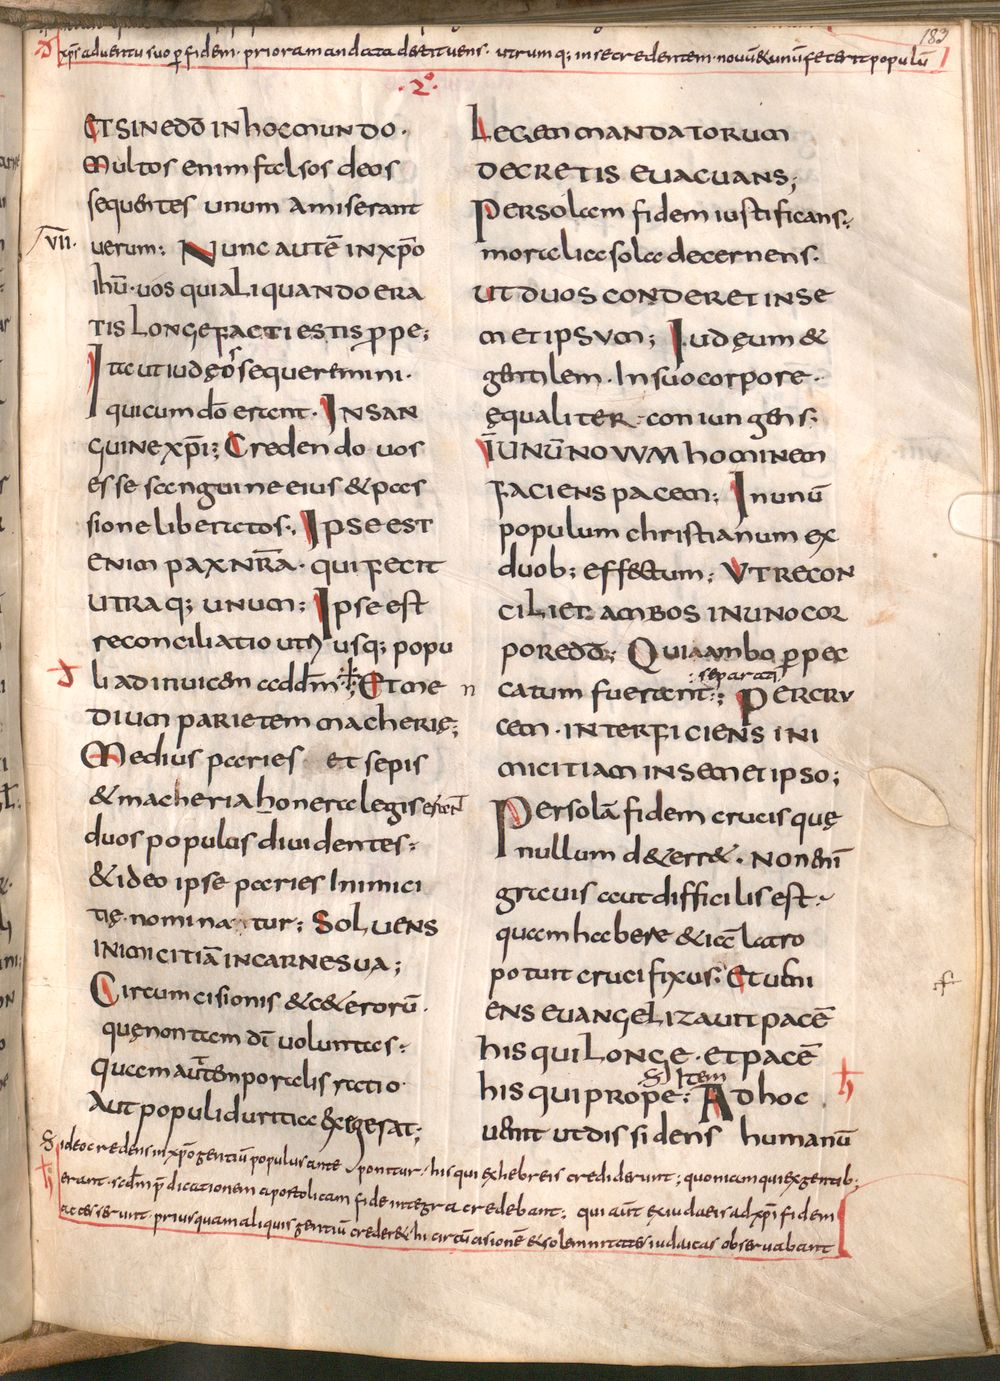 183
xp̄s adventu suo ꝑ fidem · priora mandata destituens · utrumq; in se credentem · novū & unū fecerit populū
·2°·
ET SINE DŌ IN hOC MUNDO ·
Multos enim falsos deos
sequentes unum amiserant
VII· verum; NUNC AUTĒ IN XPŌ
IhŪ · VOS QUI ALIQUANDO ERA
TIS LONGE FACTI ESTIS ꝓPE;
Ita ut iudęos sequeremini ·
qui cum dō erant · IN SAN
GUINE XPĪ; Credendo vos
esse sanguine eius & pas
sione liberatos · IPSE EST
ENIM PAX NR̄A · QUI FECIT
UTRAQ; UNUM; Ipse est
reconciliatio utriusq; popu
li ad invicem ac ad dm̄ · ET ME
DIUM PARIETEM MACHERIĘ;
Medius paries et sepis
& macheria honera legis erant
duos populos dividentes ·
& ideo ipse paries Inimici
tię nominatur; SOLVENS
INIMICITIĀ IN CARNE SUA;
Circumcisionis & ceterorū ·
quę non tam dī voluntas ·
quam aut temporalis ratio
Aut populi duritia exegerat;
LEGEM MANDATORUM
DECRETIS EVACUANS;
Per solam fidem iustificans ·
moralia sola decernens ·
UT DUOS CONDERET IN SE
METIPSUM; Iudęum &
gentilem · In suo corpore ·
ęqualiter · coniungens ·
IN UNŪ NOVVM hOMINEM
FACIENS PACEM; In unū
populum christianum ex
duob; effectum; VT RECON
CILIET AMBOS IN UNO COR
PORE DŌ; Quia ambo ꝑ pec
separati
catum fuerant; PER CRU
CEM · INTERFICIENS INI
MICITIAM IN SEMETIPSO;
Per solā fidem crucis quę
nullum d&err& · NON enī
gravis aut difficilis est ·
quam habere & iā latro
potuit crucifixus; ET VENI
ENS EVANGELIZAVIT PACĒ
hIS QUI LONGE · ET PACĒ
Item
hIS QUI PROPE; Ad hoc
venit ut dissidens humanū
ideo credens in xpō gentiū populus ante ponitur · his qui ex hebreis crediderunt; quoniam qui ex gentib;
erant · scdm p̄dicationem apostolicam fide integra credebant; qui aūt ex iudaeis ad xpī fidem
accesserunt · priusquam aliquis gentiū crederet hi circūcisionē & solemnitates iudaicas observabant